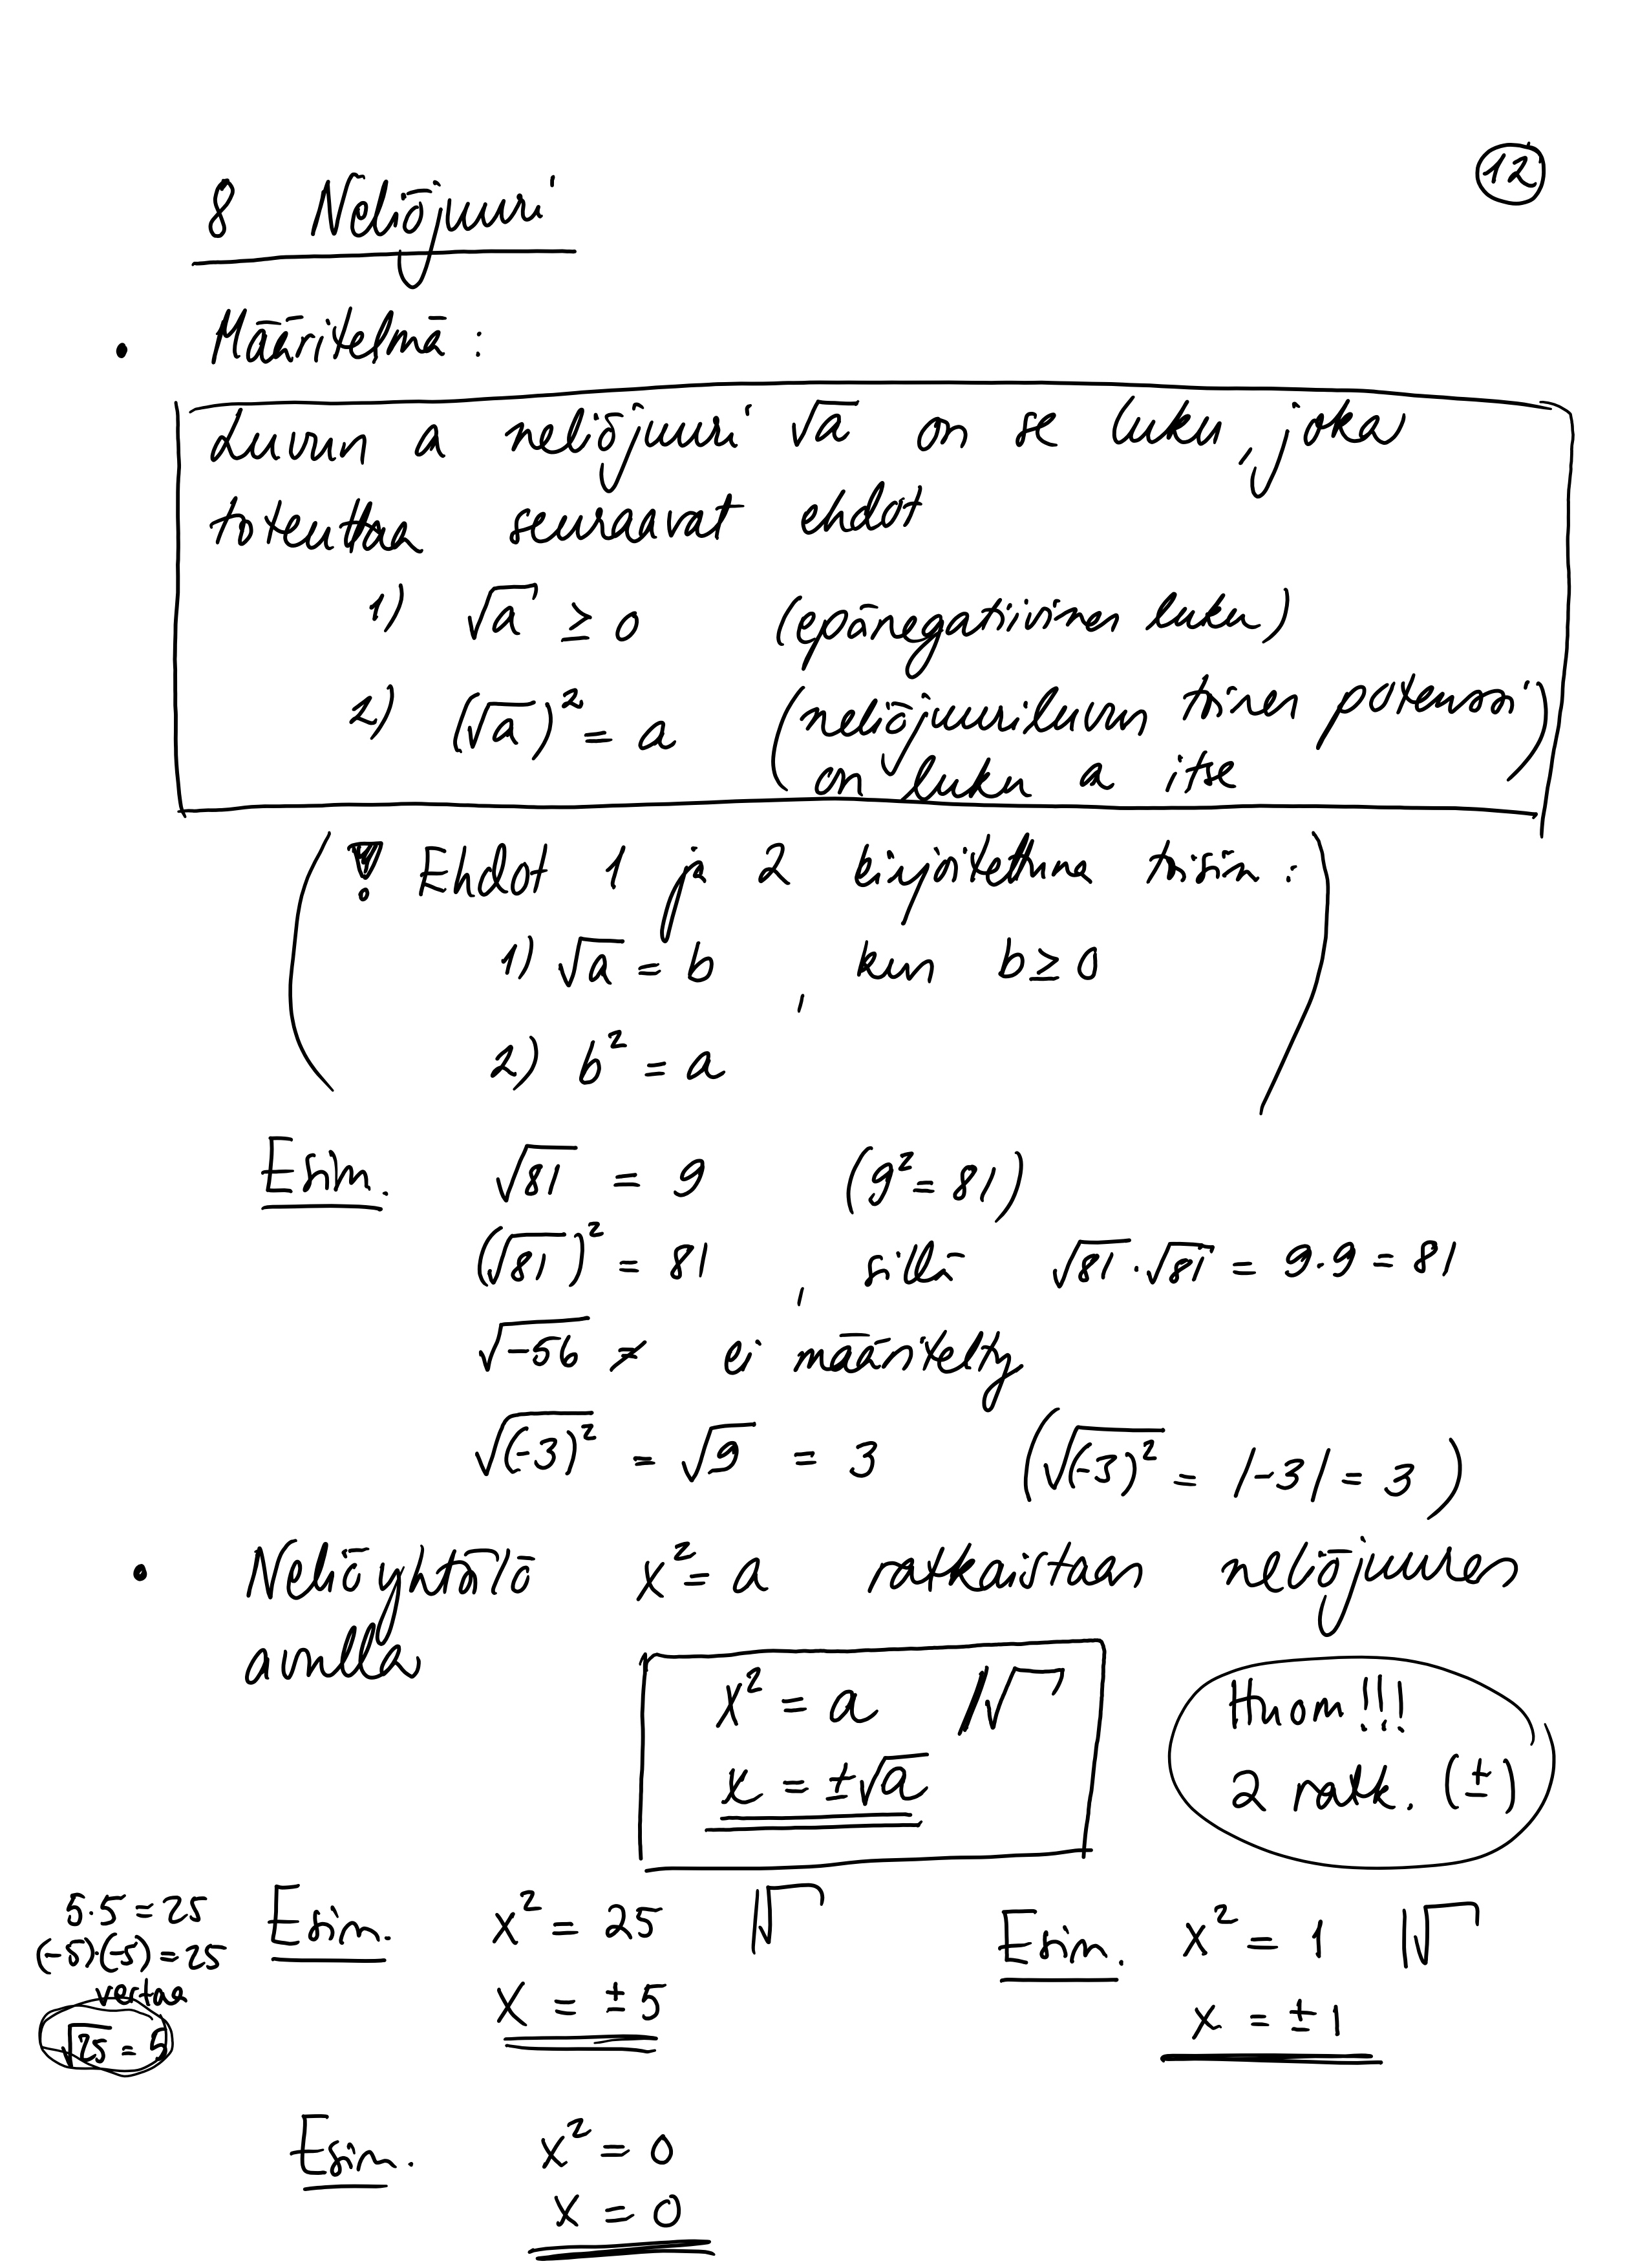 12
8 Neliöjuuri
• Määritelmä :
Luvun a neliöjuuri √a on se luku, joka
toteuttaa seuraavat ehdot
1) √a ≥ 0 (epänegatiivinen luku)
2) (√a)² = a (neliöjuuriluvun toinen potenssi
on luku a itse)
(! Ehdot 1 ja 2 kirjoitettuna toisin :
1) √a = b , kun b ≥ 0
2) b² = a)
Esim. √81 = 9 (9² = 81)
(√81)² = 81 , sillä √81 · √81 = 9·9 = 81
√-56 ≠ ei määritelty
√(-3)² = √9 = 3 (√(-3)² = |-3| = 3)
• Neliöyhtälö x² = a ratkaistaan neliöjuuren
avulla
x² = a |√
x = ±√a
Huom!!!
2 ratk. (±)
5·5 = 25
(-5)·(-5) = 25
vertaa
√25 = 5
Esim. x² = 25 |√
x = ±5
Esim. x² = 1 |√
x = ±1
Esim. x² = 0
x = 0